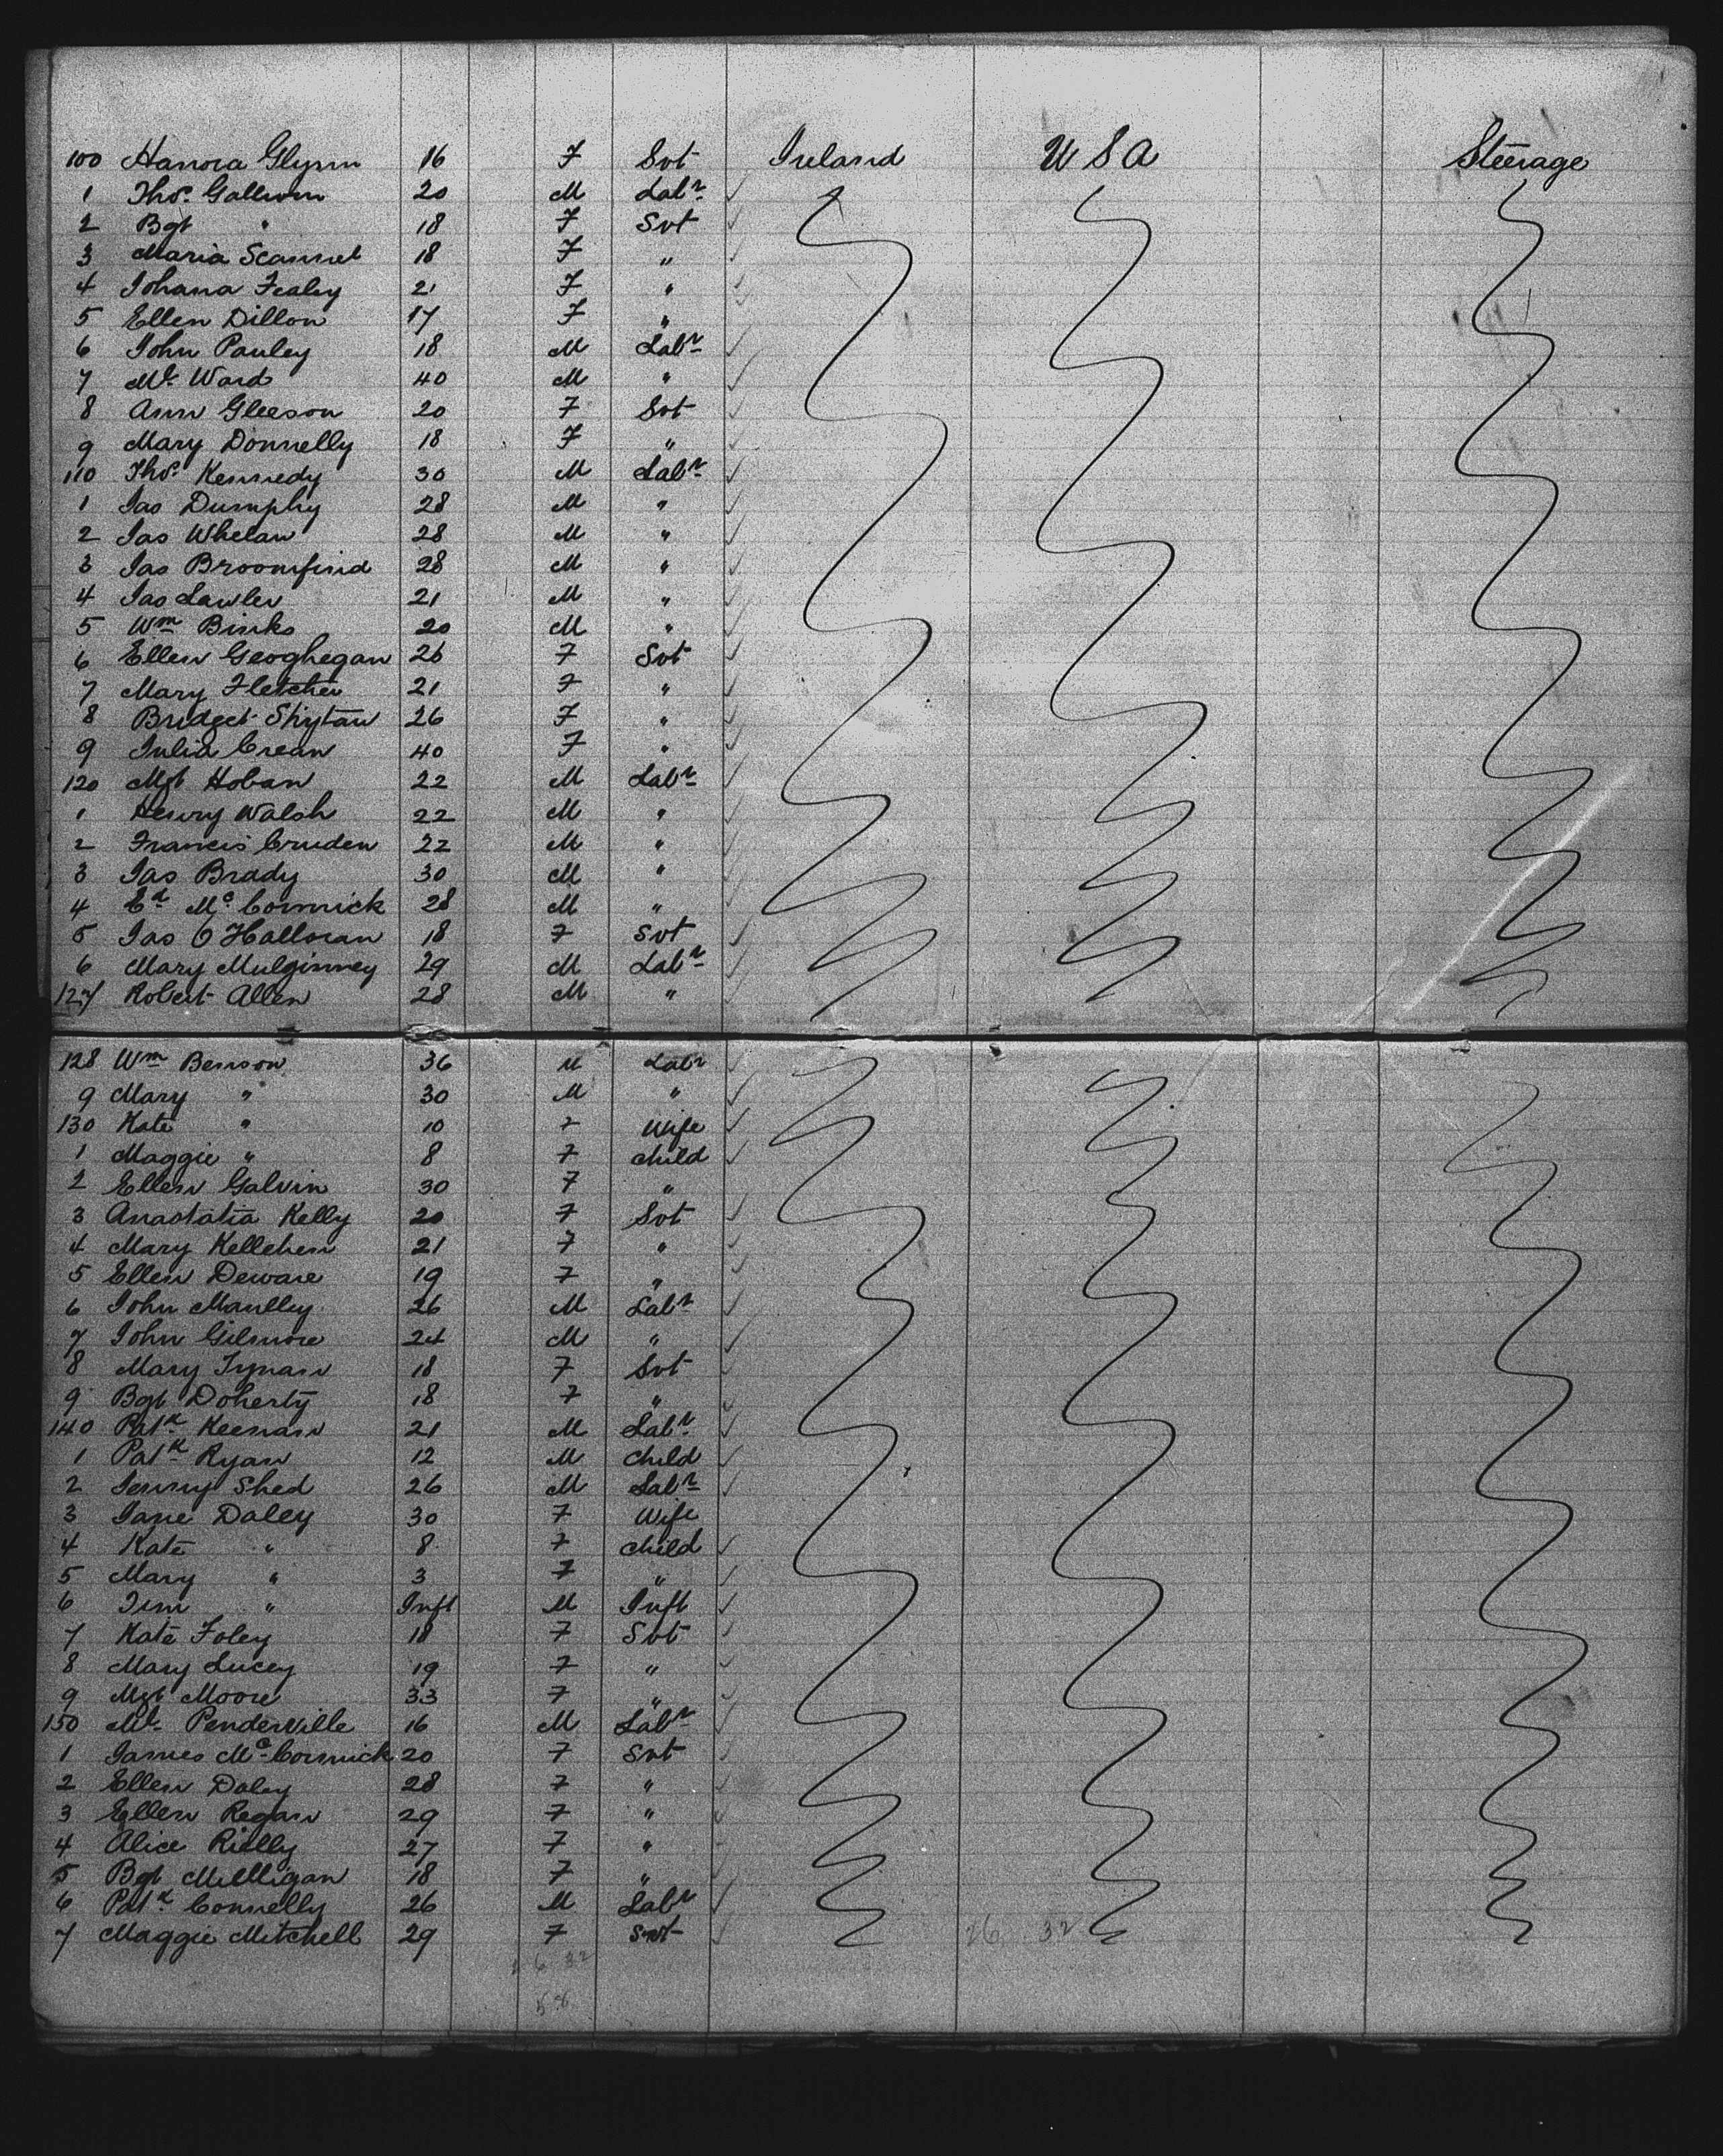 100 Hanora Glynn 16 F Svt Ireland U S A Steerage
1 Thos. Gallivan 20 M Labr.
2 Bgt " 18 F Svt
3 Maria Scannel 18 F "
4 Johana Fealey 21 F "
5 Ellen Dillon 17 F "
6 John Pauley 18 M Labr
7 Ml. Ward 40 M "
8 Ann Gleeson 20 F Svt
9 Mary Donnelly 18 F "
110 Thos. Kennedy 30 M Labr
1 Jas Dumphy 28 M "
2 Jas Whelan 28 M "
3 Jas Broomfind 28 M "
4 Jas Lawler 21 M "
5 Wm Binks 20 M "
6 Ellen Geoghegan 26 F Svt
7 Mary Fletcher 21 F "
8 Bridget 26 F "
9 Julia Crean 40 F "
120 Mgt Hoban 22 M Labr
1 Henry Walsh 22 M "
2 Francis Cruden 22 M "
3 Jas Brady 30 M "
4 Ed McCormick 28 M "
5 Jas O'Halloran 18 F Svt
6 Mary Mulginney 29 M Labr
127 Robert Allen 28 M "
128 Wm Benson 36 M Labr
9 Mary " 30 M "
130 Kate " 10 F Wife
1 Maggie " 8 F child
2 Ellen Galvin 30 F "
3 Anastatia Kelly 20 F Svt
4 Mary Kellehen 21 F "
5 Ellen Deware 19 F "
6 John Manlley 26 M Labr
7 John Gilmore 24 M "
8 Mary Tynan 18 F Svt
9 Bgt Doherty 18 F "
140 Patk Keenan 21 M Labr.
1 Patk Ryan 12 M child
2 Jenny Shed 26 M Labr
3 Jane Daley 30 F Wife
4 Kate " 8 F child
5 Mary " 3 F "
6 Jim " Inft M Inft
7 Kate Foley 18 F Svt
8 Mary Lucey 19 F "
9 Mgt Moore 33 F "
150 Ml. Penderville 16 M Labr
1 James McCormick 20 F Svt
2 Ellen Daley 28 F "
3 Ellen Regan 29 F "
4 Alice Rielly 27 F "
5 Bgt Millligan 18 F "
6 Patk Connelly 26 M Labr
7 Maggie Mitchell 29 F Svt 26 32
6 32
58